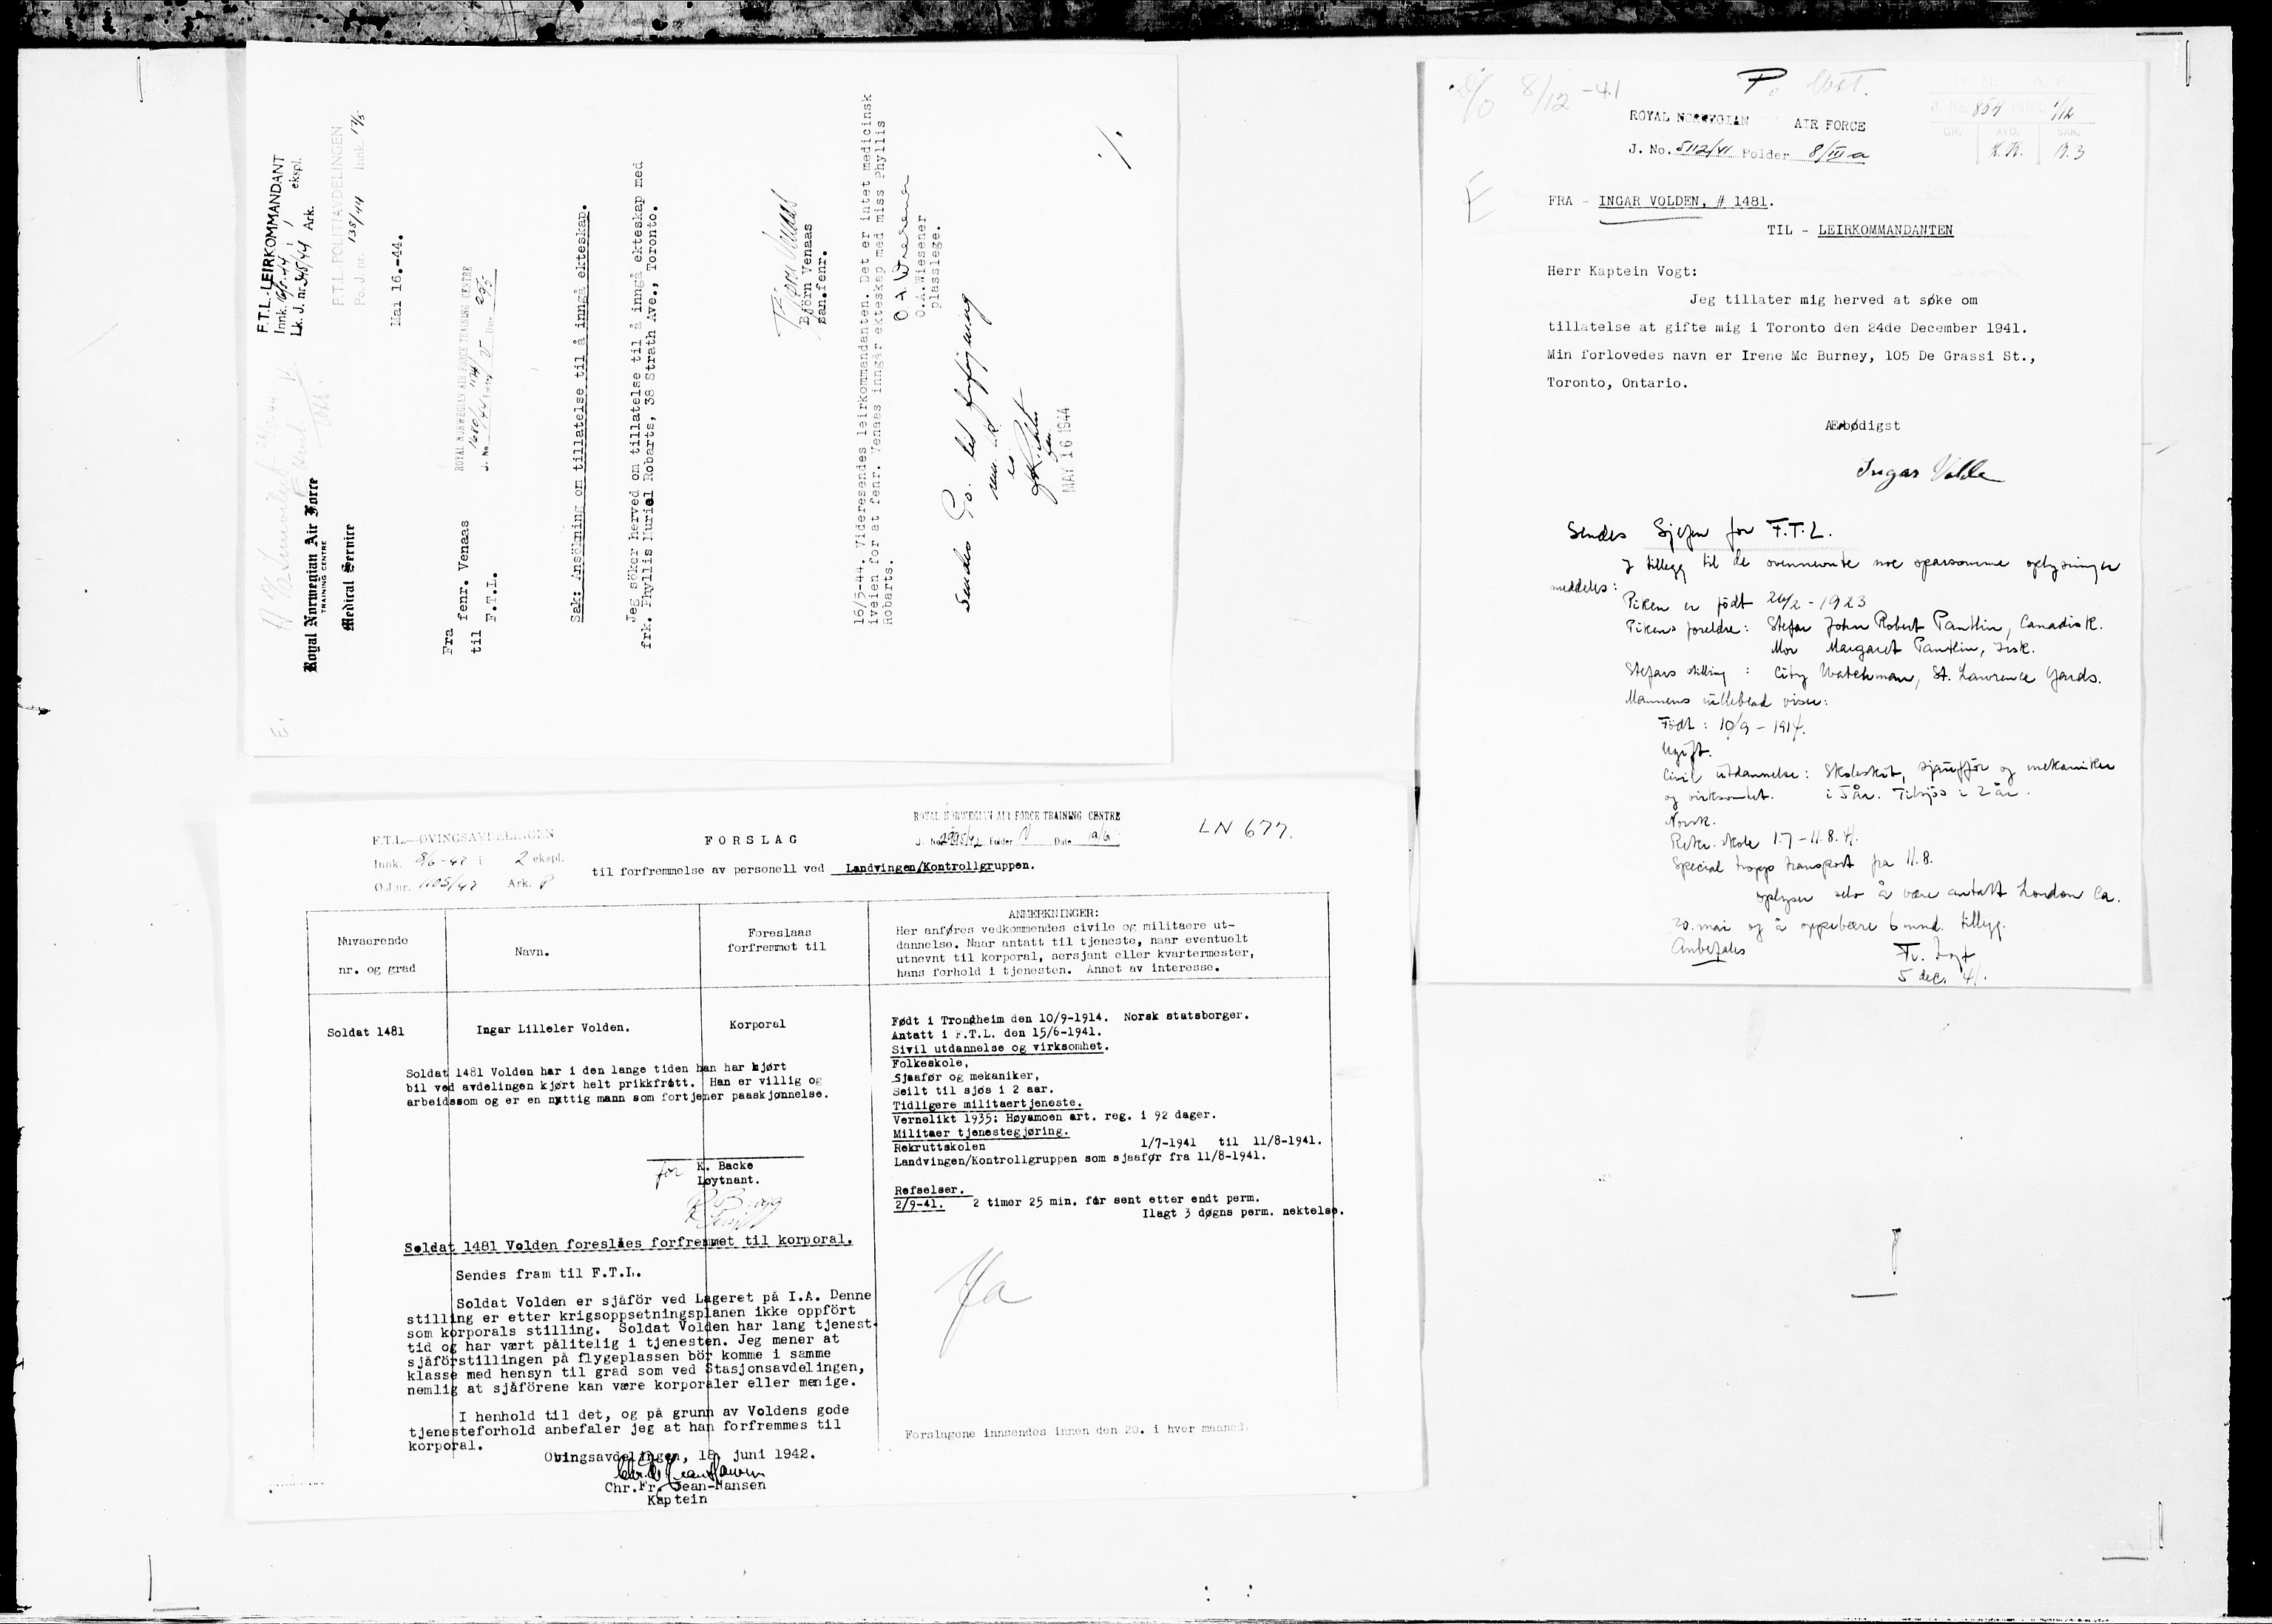 F.T.L.-LEIRKOMMANDANT
Innk. 16/5-44 i 1 ekspl.
Lk. J. nr. 348/44 Ark.
F.T.L.-POLITIAVDELINGEN
Po. J. nr. 138/44 Innk. 17/5
Royal Norwegian Air Force
TRAINING CENTRE
Medical Service
Mai 16.-44.
E.
ROYAL NORWEGIAN AIR FORCE TRAINING CENTRE
J. No. 1680/44 Date 29/5
Fra fenr. Venaas
til F.T.L.
Sak: Ansökning om tillatelse til å inngå ekteskap.
Jeg söker herved om tillatelse til å inngå ekteskap med
frk. Phyllis Muriel Robarts, 38 Strath Ave., Toronto.
Björn Venaas
Björn Venaas
san.fenr.
16/5-44. Videresendes leirkommandanten. Det er intet medicinsk
iveien for at fenr. Venaas inngår ekteskap med miss Phyllis
Robarts.
O. A. Wiesener
O.A.Wiesener
plasslege.
Sendes Po. til forføyning
MAY 16 1944
F.T.L.—ØVINGSAVDELINGEN
Innk. 8/6-42 i 2 ekspl.
Ø.J.nr. 1105/42 Ark. P
FORSLAG
til forfremmelse av personell ved Landvingen/Kontrollgruppen.
ROYAL NORWEGIAN AIR FORCE TRAINING CENTRE
J. No. 2995/42 Folder V Date 19/6
LN 677.
Nuvaerende
nr. og grad
Navn.
Foreslaas
forfremmet til
ANMERKNINGER:
Her anføres vedkommendes civile og militaere ut-
dannelse. Naar antatt til tjeneste, naar eventuelt
utnevnt til korporal, sersjant eller kvartermester,
hans forhold i tjenesten. Annet av interesse.
Soldat 1481
Ingar Lilleler Volden.
Korporal
Soldat 1481 Volden har i den lange tiden han har kjørt
bil ved avdelingen kjørt helt prikkfritt. Han er villig og
arbeidssom og er en nyttig mann som fortjener paaskjønnelse.
for K. Backe
Løytnant.
Soldat 1481 Volden foreslåes forfremmet til korporal.
Sendes fram til F.T.L.
Soldat Volden er sjåför ved Lageret på I.A. Denne
stilling er etter krigsoppsetningsplanen ikke oppfört
som korporals stilling. Soldat Volden har lang tjenest-
tid og har vært pålitelig i tjenesten. Jeg mener at
sjåförstillingen på flygeplassen bör komme i samme
klasse med hensyn til grad som ved Stasjonsavdelingen,
nemlig at sjåförene kan være korporaler eller menige.
I henhold til det, og på grunn av Voldens gode
tjenesteforhold anbefaler jeg at han forfremmes til
korporal.
Övingsavdelingen, 18 juni 1942.
Chr.Fr. Jean-Hansen
Kaptein
Født i Trondheim den 10/9-1914. Norsk statsborger.
Antatt i F.T.L. den 15/6-1941.
Sivil utdannelse og virksomhet.
Folkeskole,
Sjaafør og mekaniker,
Seilt til sjøs i 2 aar.
Tidligere militaertjeneste.
Vernelikt 1935: Høyamoen art. reg. i 92 dager.
Militaer tjenestegjøring.
Rekruttskolen 1/7-1941 til 11/8-1941.
Landvingen/Kontrollgruppen som sjaafør fra 11/8-1941.
Refselser.
2/9-41. 2 timer 25 min. for sent etter endt perm.
Ilagt 3 døgns perm. nektelse.
Ja
Forslagene innsendes innen den 20. i hver maaned.
8/12 -41
ROYAL NORWEGIAN AIR FORCE
J. No. 5112/41 Folder 8/III a
R. N. A. F.
J. No. 854 1/12
GR. AVD. SAK.
K.K. P.3
E
FRA - INGAR VOLDEN, # 1481.
TIL - LEIRKOMMANDANTEN
Herr Kaptein Vogt:
Jeg tillater mig herved at søke om
tillatelse at gifte mig i Toronto den 24de December 1941.
Min forlovedes navn er Irene Mc Burney, 105 De Grassi St.,
Toronto, Ontario.
Ærbødigst
Ingar Volden
Sendes Sjefen for F.T.L.
I tillegg til de ovennevnte noe sparsomme oplysninger
meddeles:
Piken er födt 26/2 - 1923
Pikens foreldre: Stefar John Robert Pantlin, Canadisk.
Mor Margaret Pantlin, Irsk.
Stefars stilling : City Watchman, St. Lawrence Yards.
Mannens rulleblad viser:
Födt : 10/9 - 1914.
Ugift.
Civil utdannelse: Skoleskut, sjaufför og mekaniker
og virksomhet. i 5 år. Tilsjös i 2 år.
Norsk.
Rekr. skole 1.7 - 11.8.41.
Special tropp transport fra 11.8.
Oplyser selv å være antatt London Ca.
20. mai og å oppebære 6 mnd. tillegg.
Anbefales
Fr. Vogt
5 dec. 41.